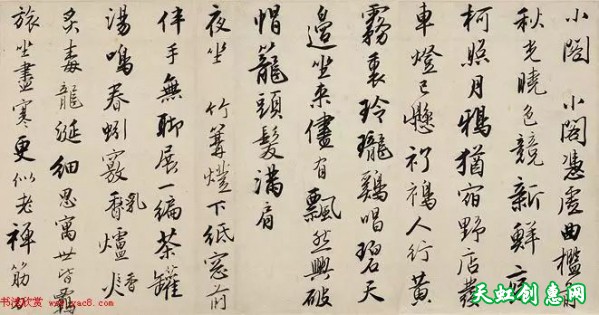 小閣 小閣憑虛曲檻前
秋光曉色競新鮮涼
柯照月鴉猶宿野店發
車燈已懸人行黃
霧裏玲瓏鷄唱碧天
邊坐來儘有飄然興破
帽籠頭髮滿肩
夜坐 竹篝燈下紙窓前
伴手無聊展一編茶罐
湯鳴春蚓竅乳爐香
炙毒龍涎細思寓世皆羈
旅坐盡寒更似老禪筋
书法欣赏
天虹创意网